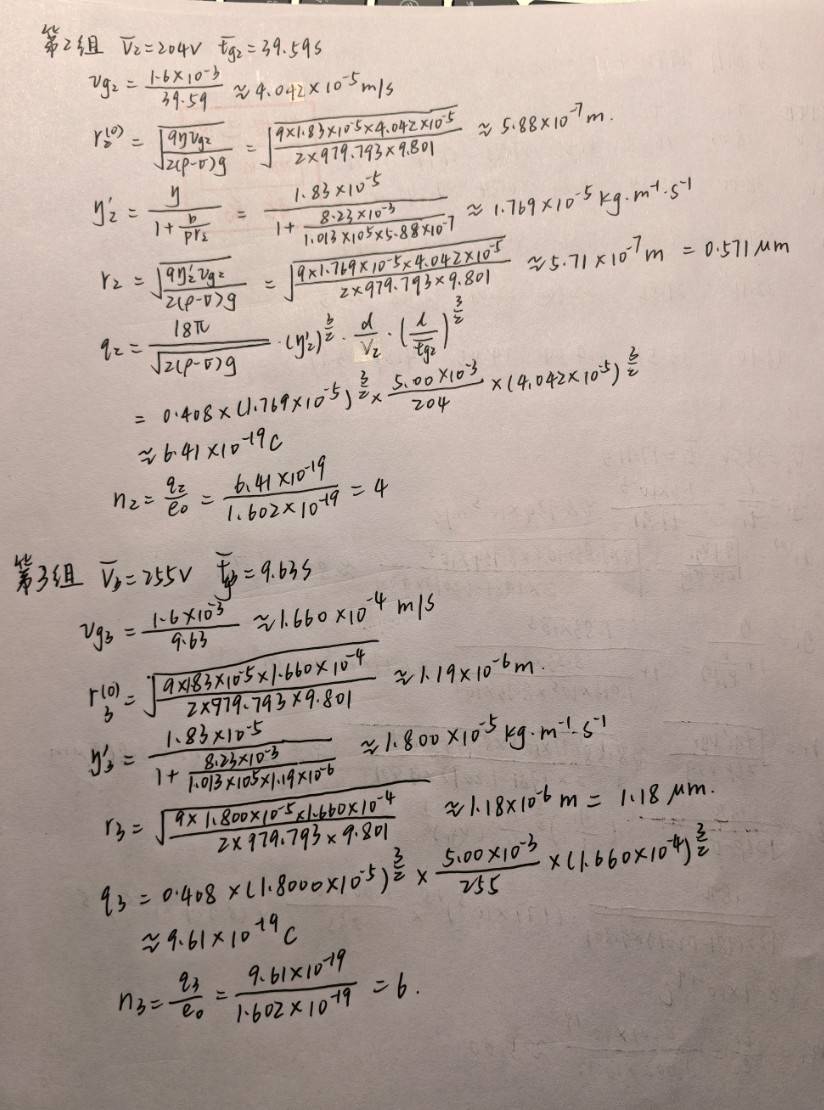 第2组 V̅₂=204V t̅g₂=39.59s
vg₂ = 1.6×10⁻³/39.59 ≈ 4.042×10⁻⁵ m/s
r₂⁽⁰⁾ = √(9ηvg₂/2(ρ-σ)g) = √(9×1.83×10⁻⁵×4.042×10⁻⁵/2×979.793×9.801) ≈ 5.88×10⁻⁷ m.
η₂′ = η/(1+b/pr₂) = 1.83×10⁻⁵/(1+8.23×10⁻³/1.013×10⁵×5.88×10⁻⁷) ≈ 1.769×10⁻⁵ kg·m⁻¹·s⁻¹
r₂ = √(9η₂′vg₂/2(ρ-σ)g) = √(9×1.769×10⁻⁵×4.042×10⁻⁵/2×979.793×9.801) ≈ 5.71×10⁻⁷ m = 0.571 μm
q₂ = 18π/√(2(ρ-σ)g) · (η₂′)^(3/2) · d/V₂ · (l/t̅g₂)^(3/2)
= 0.408×(1.769×10⁻⁵)^(3/2) × 5.00×10⁻³/204 × (4.042×10⁻⁵)^(3/2)
≈ 6.41×10⁻¹⁹ C
n₂ = q₂/e₀ = 6.41×10⁻¹⁹/1.602×10⁻¹⁹ = 4
第3组 V̅₃=255V t̅g₃=9.63s
vg₃ = 1.6×10⁻³/9.63 ≈ 1.660×10⁻⁴ m/s
r₃⁽⁰⁾ = √(9×1.83×10⁻⁵×1.660×10⁻⁴/2×979.793×9.801) ≈ 1.19×10⁻⁶ m.
η₃′ = 1.83×10⁻⁵/(1+8.23×10⁻³/1.013×10⁵×1.19×10⁻⁶) ≈ 1.800×10⁻⁵ kg·m⁻¹·s⁻¹
r₃ = √(9×1.800×10⁻⁵×1.660×10⁻⁴/2×979.793×9.801) ≈ 1.18×10⁻⁶ m = 1.18 μm.
q₃ = 0.408×(1.8000×10⁻⁵)^(3/2) × 5.00×10⁻³/255 × (1.660×10⁻⁴)^(3/2)
≈ 9.61×10⁻¹⁹ C
n₃ = q₃/e₀ = 9.61×10⁻¹⁹/1.602×10⁻¹⁹ = 6.